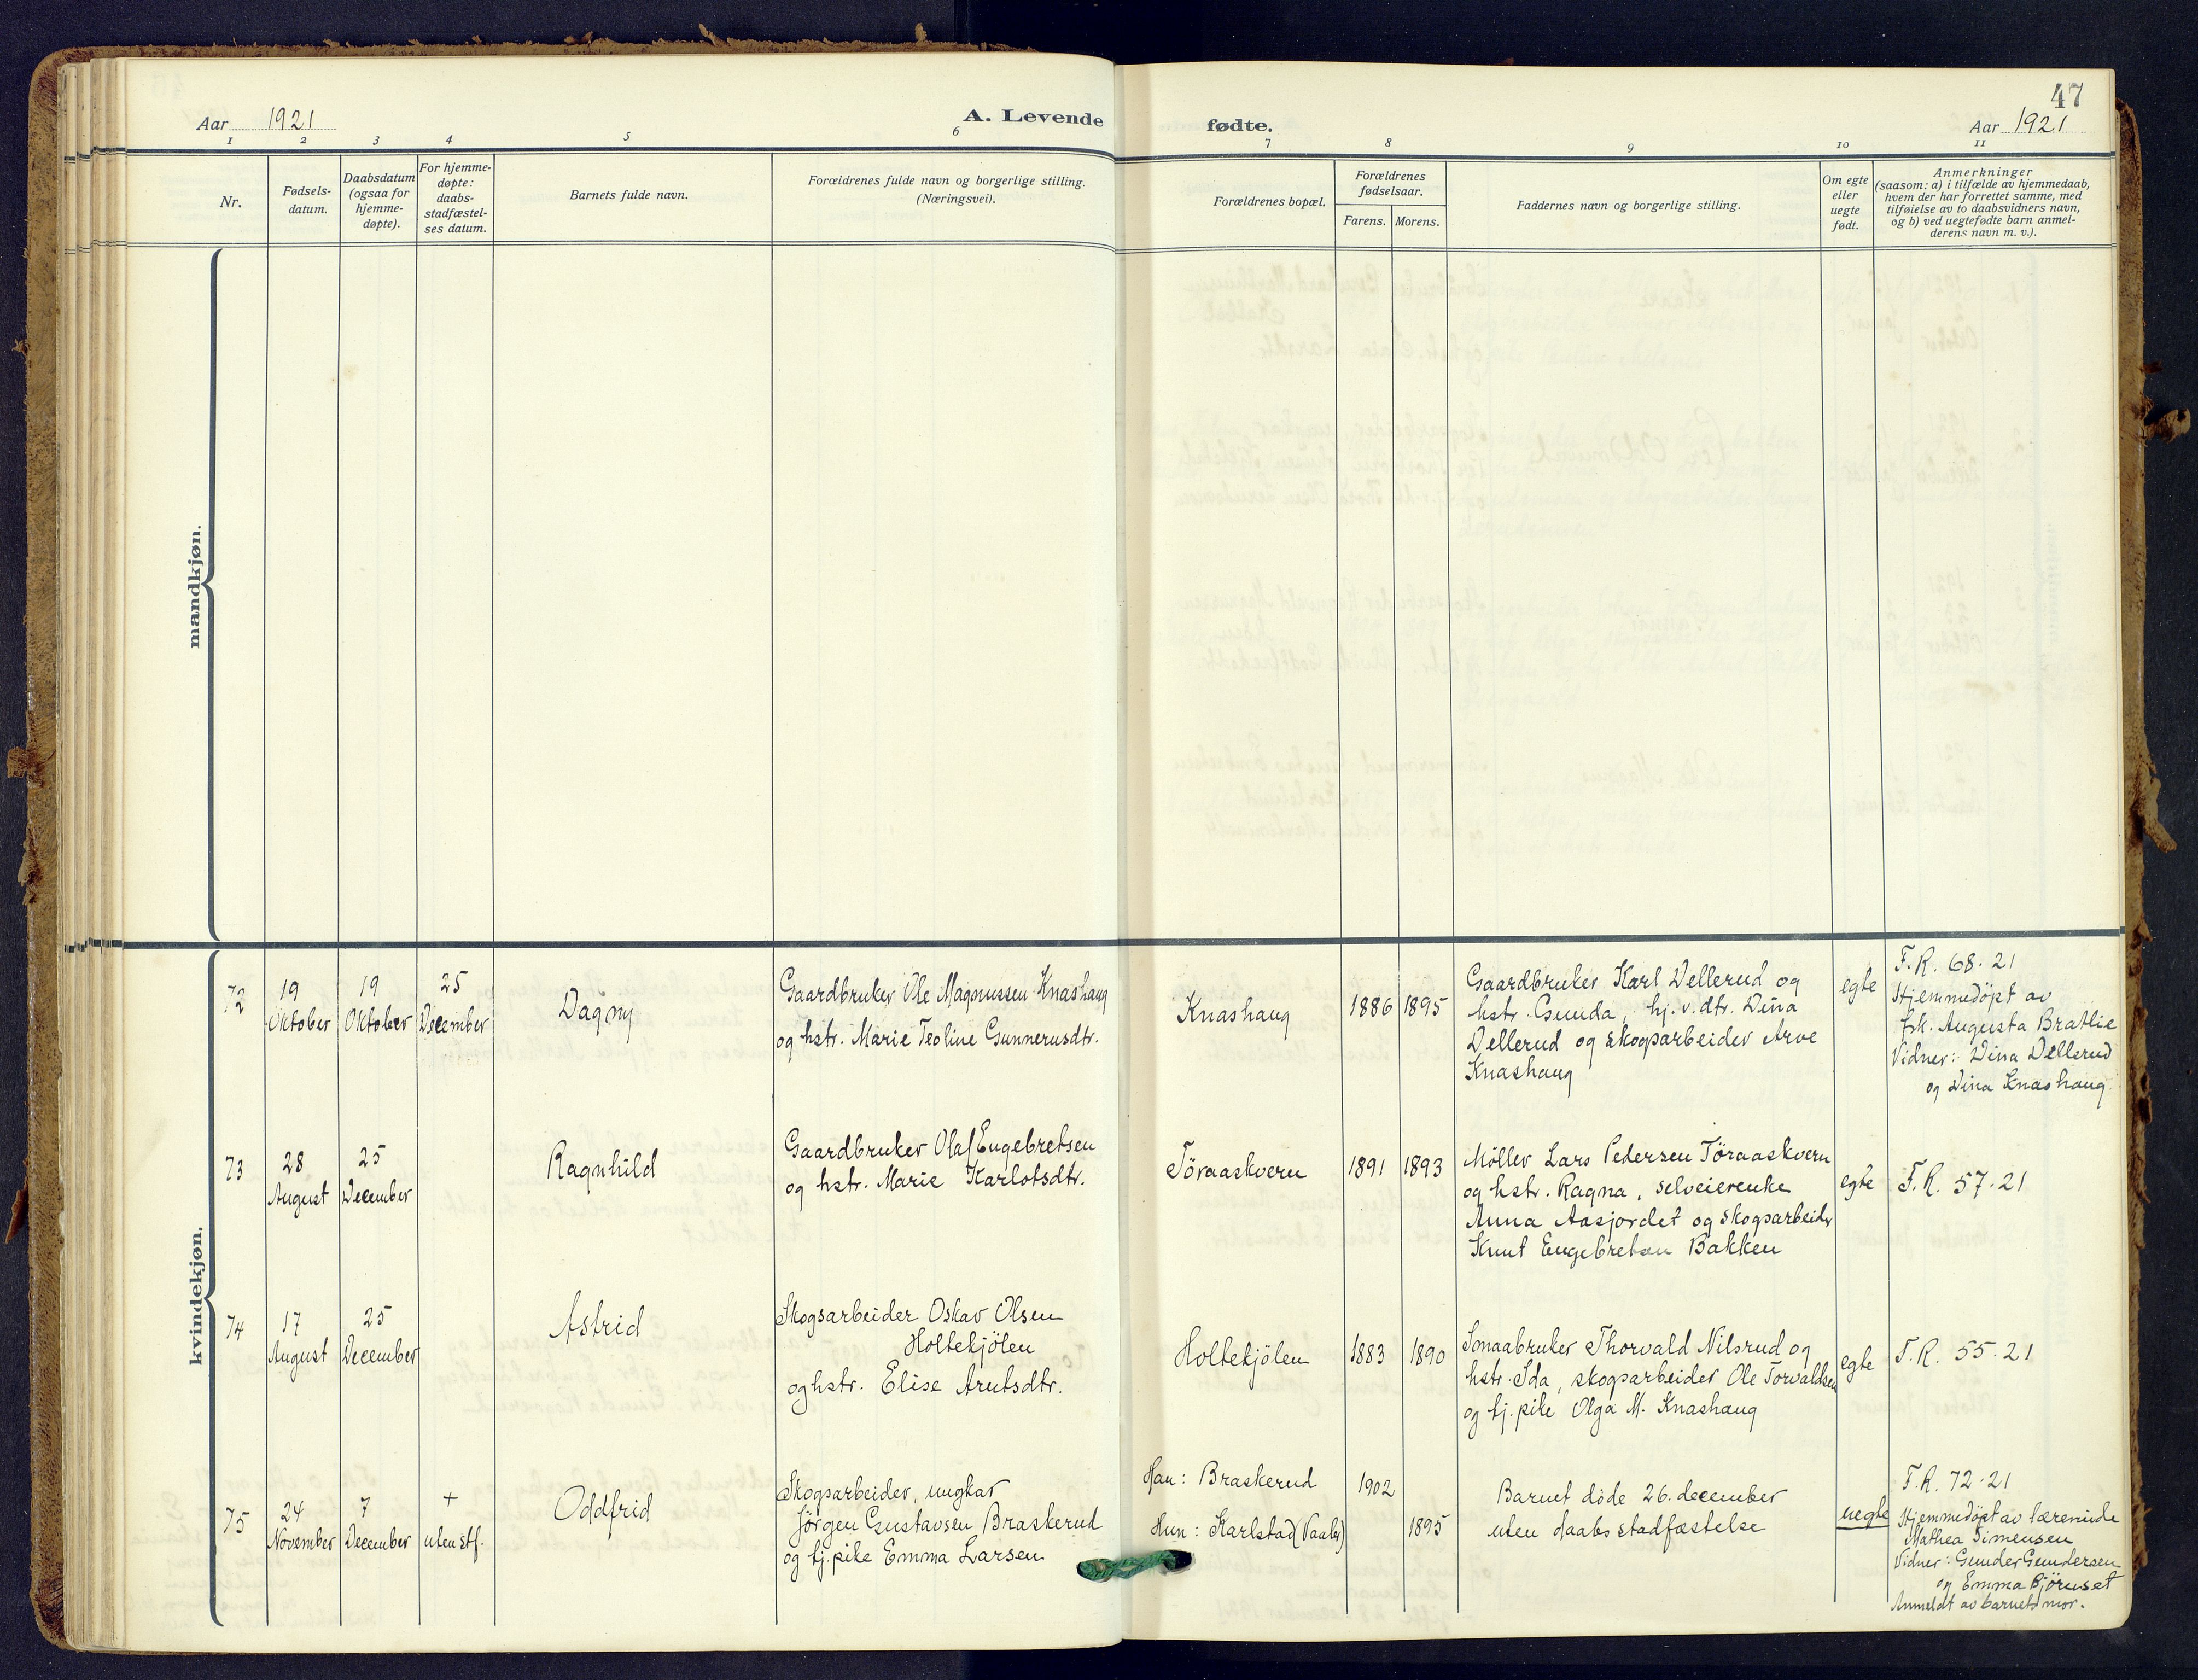 47
Aar 1921
A. Levende
fødte.
Aar 1921
1 2 3 4 5 6 7 8 9 10 11
Nr.
Fødsels-
datum.
Daabsdatum
(ogsaa for
hjemme-
døpte).
For hjemme-
døpte:
daabs-
stadfæstel-
ses datum.
Barnets fulde navn.
Forældrenes fulde navn og borgerlige stilling.
(Næringsvei).
Forældrenes bopæl.
Forældrenes
fødselsaar.
Farens. Morens.
Faddernes navn og borgerlige stilling.
Om egte
eller
uegte
født.
Anmerkninger
(saasom: a) i tilfælde av hjemmedaab,
hvem der har forrettet samme, med
tilføielse av to daabsvidners navn,
og b) ved uegtefødte barn anmel-
derens navn m. v.).
mandkjøn.
kvindekjøn.
72
19
Oktober
19
Oktober
25
December
Dagny
Gaardbruker Ole Magnussen Knashaug
og hstr. Marie Teoline Gunnerusdtr.
Knashaug
1886 1895
Gaardbruker Karl Dellerud og
hstr. Gunda, hj. v. dtr. Dina
Dellerud og skogsarbeider Arve
Knashaug
egte
F. R. 68-21
Hjemmedöpt av
frk. Augusta Bratlie
Vidner: Dina Dellerud
og Dina Knashaug
73
28
August
25
December
Ragnhild
Gaardbruker Olaf Engebretsen
og hstr. Marie Karlotsdtr.
Töraaskvern
1891 1893
Möller Lars Pedersen Töraaskvern
og hstr. Ragna, selveierenke
Anna Aasjordet og skogsarbeider
Knut Engebretsen Bakken
egte
F. R. 57-21
74
17
August
25
December
Astrid
Skogsarbeider Oskar Olsen
Holtekjölen
og hstr. Elise Arntsdtr.
Holtekjölen
1883 1890
Smaabruker Thorvald Nilsrud og
hstr. Ida, skogsarbeider Ole Torvaldsen
og tj. pike Olga M. Knashaug
egte
F. R. 55-21
75
24
November
7
December
+
uten stf.
Oddfrid
Skogsarbeider, ungkar
Jörgen Gustavsen Braskerud
og tj. pike Emma Larsen
Han: Braskerud
Hun: Karlstad (Vaaler)
1902
1895
Barnet döde 26. december
uten daabsstadfæstelse
uegte
F. R. 72-21
Hjemmedöpt av lærerinde
Mathea Simensen
Vidner: Gunder Gundersen
og Emma Björnset
Anmeldt av barnets mor.